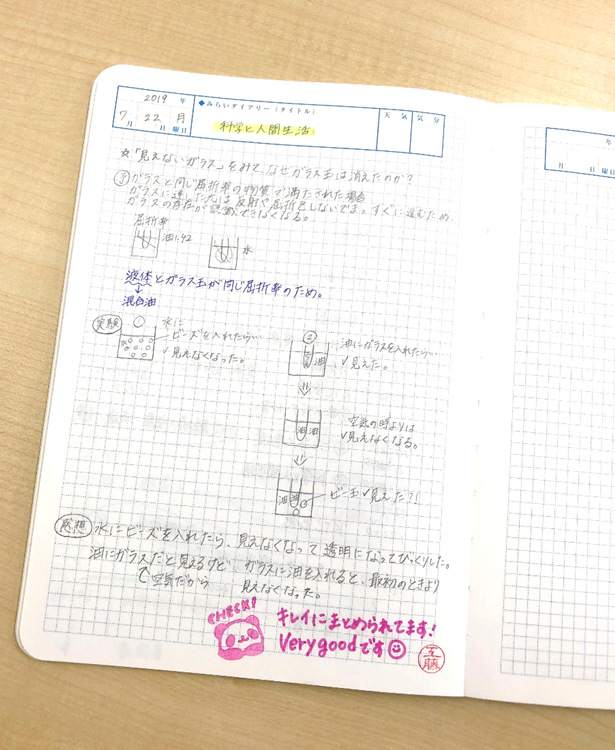 2019 年
7月 22日 月曜日
◆みらいダイアリー（タイトル）
天気 気分
科学と人間生活
☆「見えないガラス」をみて、なぜガラス玉は消えたのか？
予 ガラスと同じ屈折率の物質で満たされた場合
ガラスに達した光は反射や屈折をしないでまっすぐに進むため、
ガラスの存在が認識できなくなる。
屈折率
油1.42
水
液体とガラス玉が同じ屈折率のため。
↓
混合油
実験
水に
ビーズを入れたら…
✓見えなくなった。
②
油
油にガラスを入れたら…
✓見えた。
油 油
空気の時よりは
✓見えなくなる。
油 油
ビー玉✓見えた?!
感想 水にビーズを入れたら、見えなくなって透明になってびっくりした。
油にガラスだと見えるけど、ガラスに油を入れると、最初のときより
空気だから
見えなくなった。
CHECK!
キレイにまとめられてます！
Very goodです☺
工藤
年
月
日